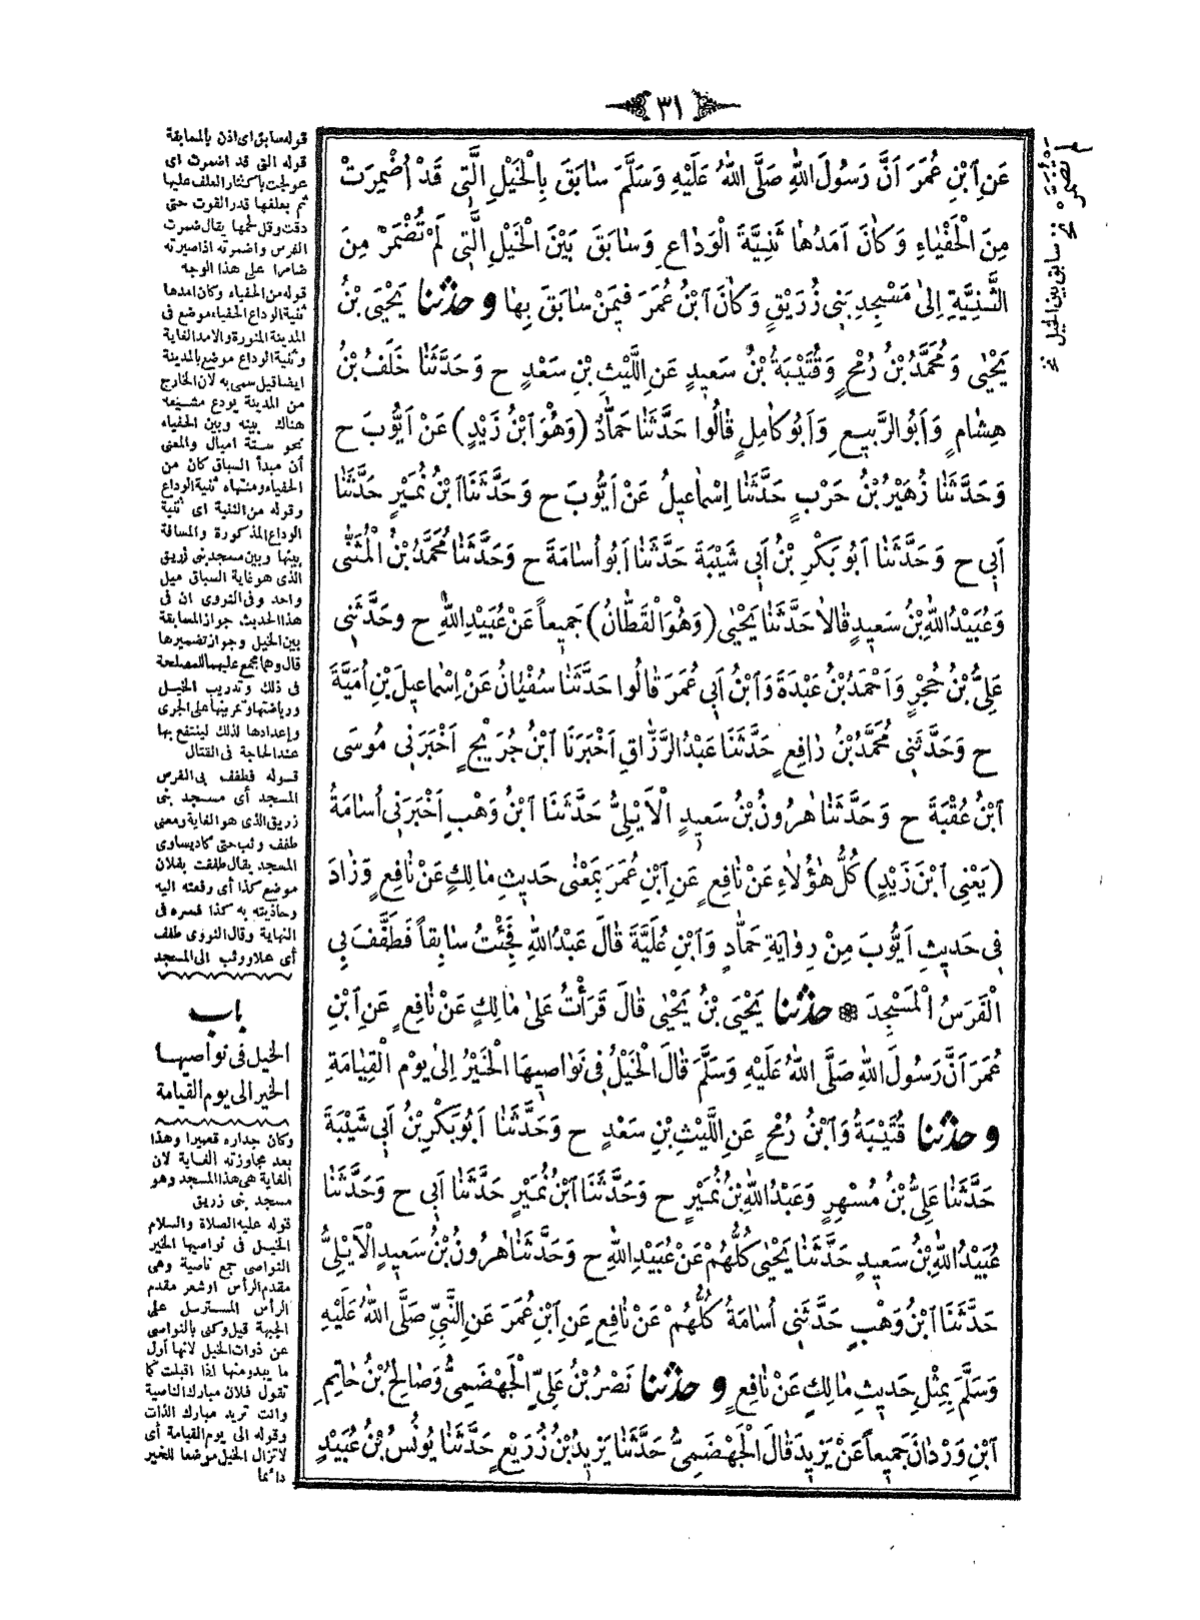 ٣١
عَنِ ٱبْنِ عُمَرَ اَنَّ رَسُولَ اللهِ صَلَّى اللهُ عَلَيْهِ وَسَلَّمَ سَابَقَ بِالْخَيْلِ الَّتِى قَدْ اُضْمِرَتْ
مِنَ الْحَفْيَاءِ وَكَانَ اَمَدُهَا ثَنِيَّةَ الْوَدَاعِ وَسَابَقَ بَيْنَ الْخَيْلِ الَّتِى لَمْ تُضْمَرْ مِنَ
الثَّنِيَّةِ اِلىٰ مَسْجِدِ بَنِى زُرَيْقٍ وَكَانَ ٱبْنُ عُمَرَ فِيمَنْ سَابَقَ بِهَا وحدثنا يَحْيَى بْنُ
يَحْيٰى وَمُحَمَّدُ بْنُ رُمْحٍ وَقُتَيْبَةُ بْنُ سَعِيدٍ عَنِ اللَّيْثِ بْنِ سَعْدٍ ح وَحَدَّثَنَا خَلَفُ بْنُ
هِشَامٍ وَاَبُو الرَّبِيعِ وَاَبُو كَامِلٍ قَالُوا حَدَّثَنَا حَمَّادٌ (وَهُوَ ٱبْنُ زَيْدٍ) عَنْ اَيُّوبَ ح
وَحَدَّثَنَا زُهَيْرُ بْنُ حَرْبٍ حَدَّثَنَا اِسْمَاعِيلُ عَنْ اَيُّوبَ ح وَحَدَّثَنَا ٱبْنُ نُمَيْرٍ حَدَّثَنَا
اَبِى ح وَحَدَّثَنَا اَبُو بَكْرِ بْنُ اَبِى شَيْبَةَ حَدَّثَنَا اَبُو اُسَامَةَ ح وَحَدَّثَنَا مُحَمَّدُ بْنُ الْمُثَنَّى
وَعُبَيْدُ اللهِ بْنُ سَعِيدٍ قَالَا حَدَّثَنَا يَحْيٰى (وَهُوَ الْقَطَّانُ) جَمِيعاً عَنْ عُبَيْدِ اللهِ ح وحَدَّثَنِى
عَلِىُّ بْنُ حُجْرٍ وَاَحْمَدُ بْنُ عَبْدَةَ وَٱبْنُ اَبِى عُمَرَ قَالُوا حَدَّثَنَا سُفْيَانُ عَنْ اِسْمَاعِيلَ بْنِ اُمَيَّةَ
ح وَحَدَّثَنِى مُحَمَّدُ بْنُ رَافِعٍ حَدَّثَنَا عَبْدُ الرَّزَّاقِ اَخْبَرَنَا ٱبْنُ جُرَيْجٍ اَخْبَرَنِى مُوسَى
ٱبْنُ عُقْبَةَ ح وَحَدَّثَنَا هٰرُونُ بْنُ سَعِيدٍ الْاَيْلِىُّ حَدَّثَنَا ٱبْنُ وَهْبٍ اَخْبَرَنِى اُسَامَةُ
(يَعْنِى ٱبْنَ زَيْدٍ) كُلُّ هٰؤُلَاءِ عَنْ نَافِعٍ عَنِ ٱبْنِ عُمَرَ بِمَعْنٰى حَدِيثِ مَالِكٍ عَنْ نَافِعٍ وَزَادَ
فِى حَدِيثِ اَيُّوبَ مِنْ رِوَايَةِ حَمَّادٍ وَٱبْنِ عُلَيَّةَ قَالَ عَبْدُ اللهِ فَجِئْتُ سَابِقاً فَطَفَّفَ بِى
الْفَرَسُ الْمَسْجِدَ ۞ حدثنا يَحْيَى بْنُ يَحْيٰى قَالَ قَرَأْتُ عَلىٰ مَالِكٍ عَنْ نَافِعٍ عَنِ ٱبْنِ
عُمَرَ اَنَّ رَسُولَ اللهِ صَلَّى اللهُ عَلَيْهِ وَسَلَّمَ قَالَ الْخَيْلُ فِى نَوَاصِيهَا الْخَيْرُ اِلىٰ يَوْمِ الْقِيَامَةِ
وحدثنا قُتَيْبَةُ وَٱبْنُ رُمْحٍ عَنِ اللَّيْثِ بْنِ سَعْدٍ ح وَحَدَّثَنَا اَبُو بَكْرِ بْنُ اَبِى شَيْبَةَ
حَدَّثَنَا عَلِىُّ بْنُ مُسْهِرٍ وَعَبْدُ اللهِ بْنُ نُمَيْرٍ ح وَحَدَّثَنَا ٱبْنُ نُمَيْرٍ حَدَّثَنَا اَبِى ح وَحَدَّثَنَا
عُبَيْدُ اللهِ بْنُ سَعِيدٍ حَدَّثَنَا يَحْيٰى كُلُّهُمْ عَنْ عُبَيْدِ اللهِ ح وَحَدَّثَنَا هٰرُونُ بْنُ سَعِيدٍ الْاَيْلِىُّ
حَدَّثَنَا ٱبْنُ وَهْبٍ حَدَّثَنِى اُسَامَةُ كُلُّهُمْ عَنْ نَافِعٍ عَنِ ٱبْنِ عُمَرَ عَنِ النَّبِىِّ صَلَّى اللهُ عَلَيْهِ
وَسَلَّمَ بِمِثْلِ حَدِيثِ مَالِكٍ عَنْ نَافِعٍ وحدثنا نَصْرُ بْنُ عَلِىٍّ الْجَهْضَمِىُّ وَصَالِحُ بْنُ حَاتِمِ
ٱبْنِ وَرْدَانَ جَمِيعاً عَنْ يَزِيدَ قَالَ الْجَهْضَمِىُّ حَدَّثَنَا يَزِيدُ بْنُ زُرَيْعٍ حَدَّثَنَا يُونُسُ بْنُ عُبَيْدٍ
سابق بين الخيل نخ
قوله سابق اى اذن بالمسابقة
قوله التى قد اضمرت اى
عولجت باكثار العلف عليها
ثم بعلفها قدر القوت حتى
دقت وقل لحمها يقال ضمرت
الفرس واضمرته اذا صيرته
ضامرا على هذا الوجه
قوله من الحفياء وكان امدها
ثنية الوداع الحفياء موضع فى
المدينة المنورة والامد الغاية
وثنية الوداع موضع بالمدينة
ايضا قيل سمى به لأن الخارج
من المدينة يودع مشيعه
هناك بينه وبين الحفياء
نحو ستة اميال والمعنى
أن مبدأ السباق كان من
الحفياء ومنتهاه ثنية الوداع
وقوله من الثنية اى ثنية
الوداع المذكورة والمسافة
بينها وبين مسجد بنى زريق
الذى هو غاية السباق ميل
واحد وفى النووى ان فى
هذا الحديث جواز المسابقة
بين الخيل وجواز تضميرها
قال وهما مجمع عليهما للمصلحة
فى ذلك وتدريب الخيل
ورياضتها وتمرينها على الجرى
وإعدادها لذلك لينتفع بها
عند الحاجة فى القتال
قوله فطفف بى الفرس
المسجد أى مسجد بنى
زريق الذى هو الغاية ومعنى
طفف وثب حتى كاد يساوى
المسجد يقال طففت بفلان
موضع كذا أى رفعته اليه
وحاذيته به كذا فسره فى
النهاية وقال النووى طفف
أى علا ووثب الى المسجد
باب
الخيل فى نواصيها
الخير الى يوم القيامة
وكان جداره قصيرا وهذا
بعد مجاوزته الغاية لان
الغاية هى هذا المسجد وهو
مسجد بنى زريق
قوله عليه الصلاة والسلام
الخيل فى نواصيها الخير
النواصى جمع ناصية وهى
مقدم الرأس اوشعر مقدم
الرأس المسترسل على
الجبهة قيل وكنى بالنواصى
عن ذوات الخيل لانها أول
ما يبدو منها اذا اقبلت كما
تقول فلان مبارك الناصية
وانت تريد مبارك الذات
وقوله الى يوم القيامة أى
لا تزال الخيل موضعا للخير
دائما